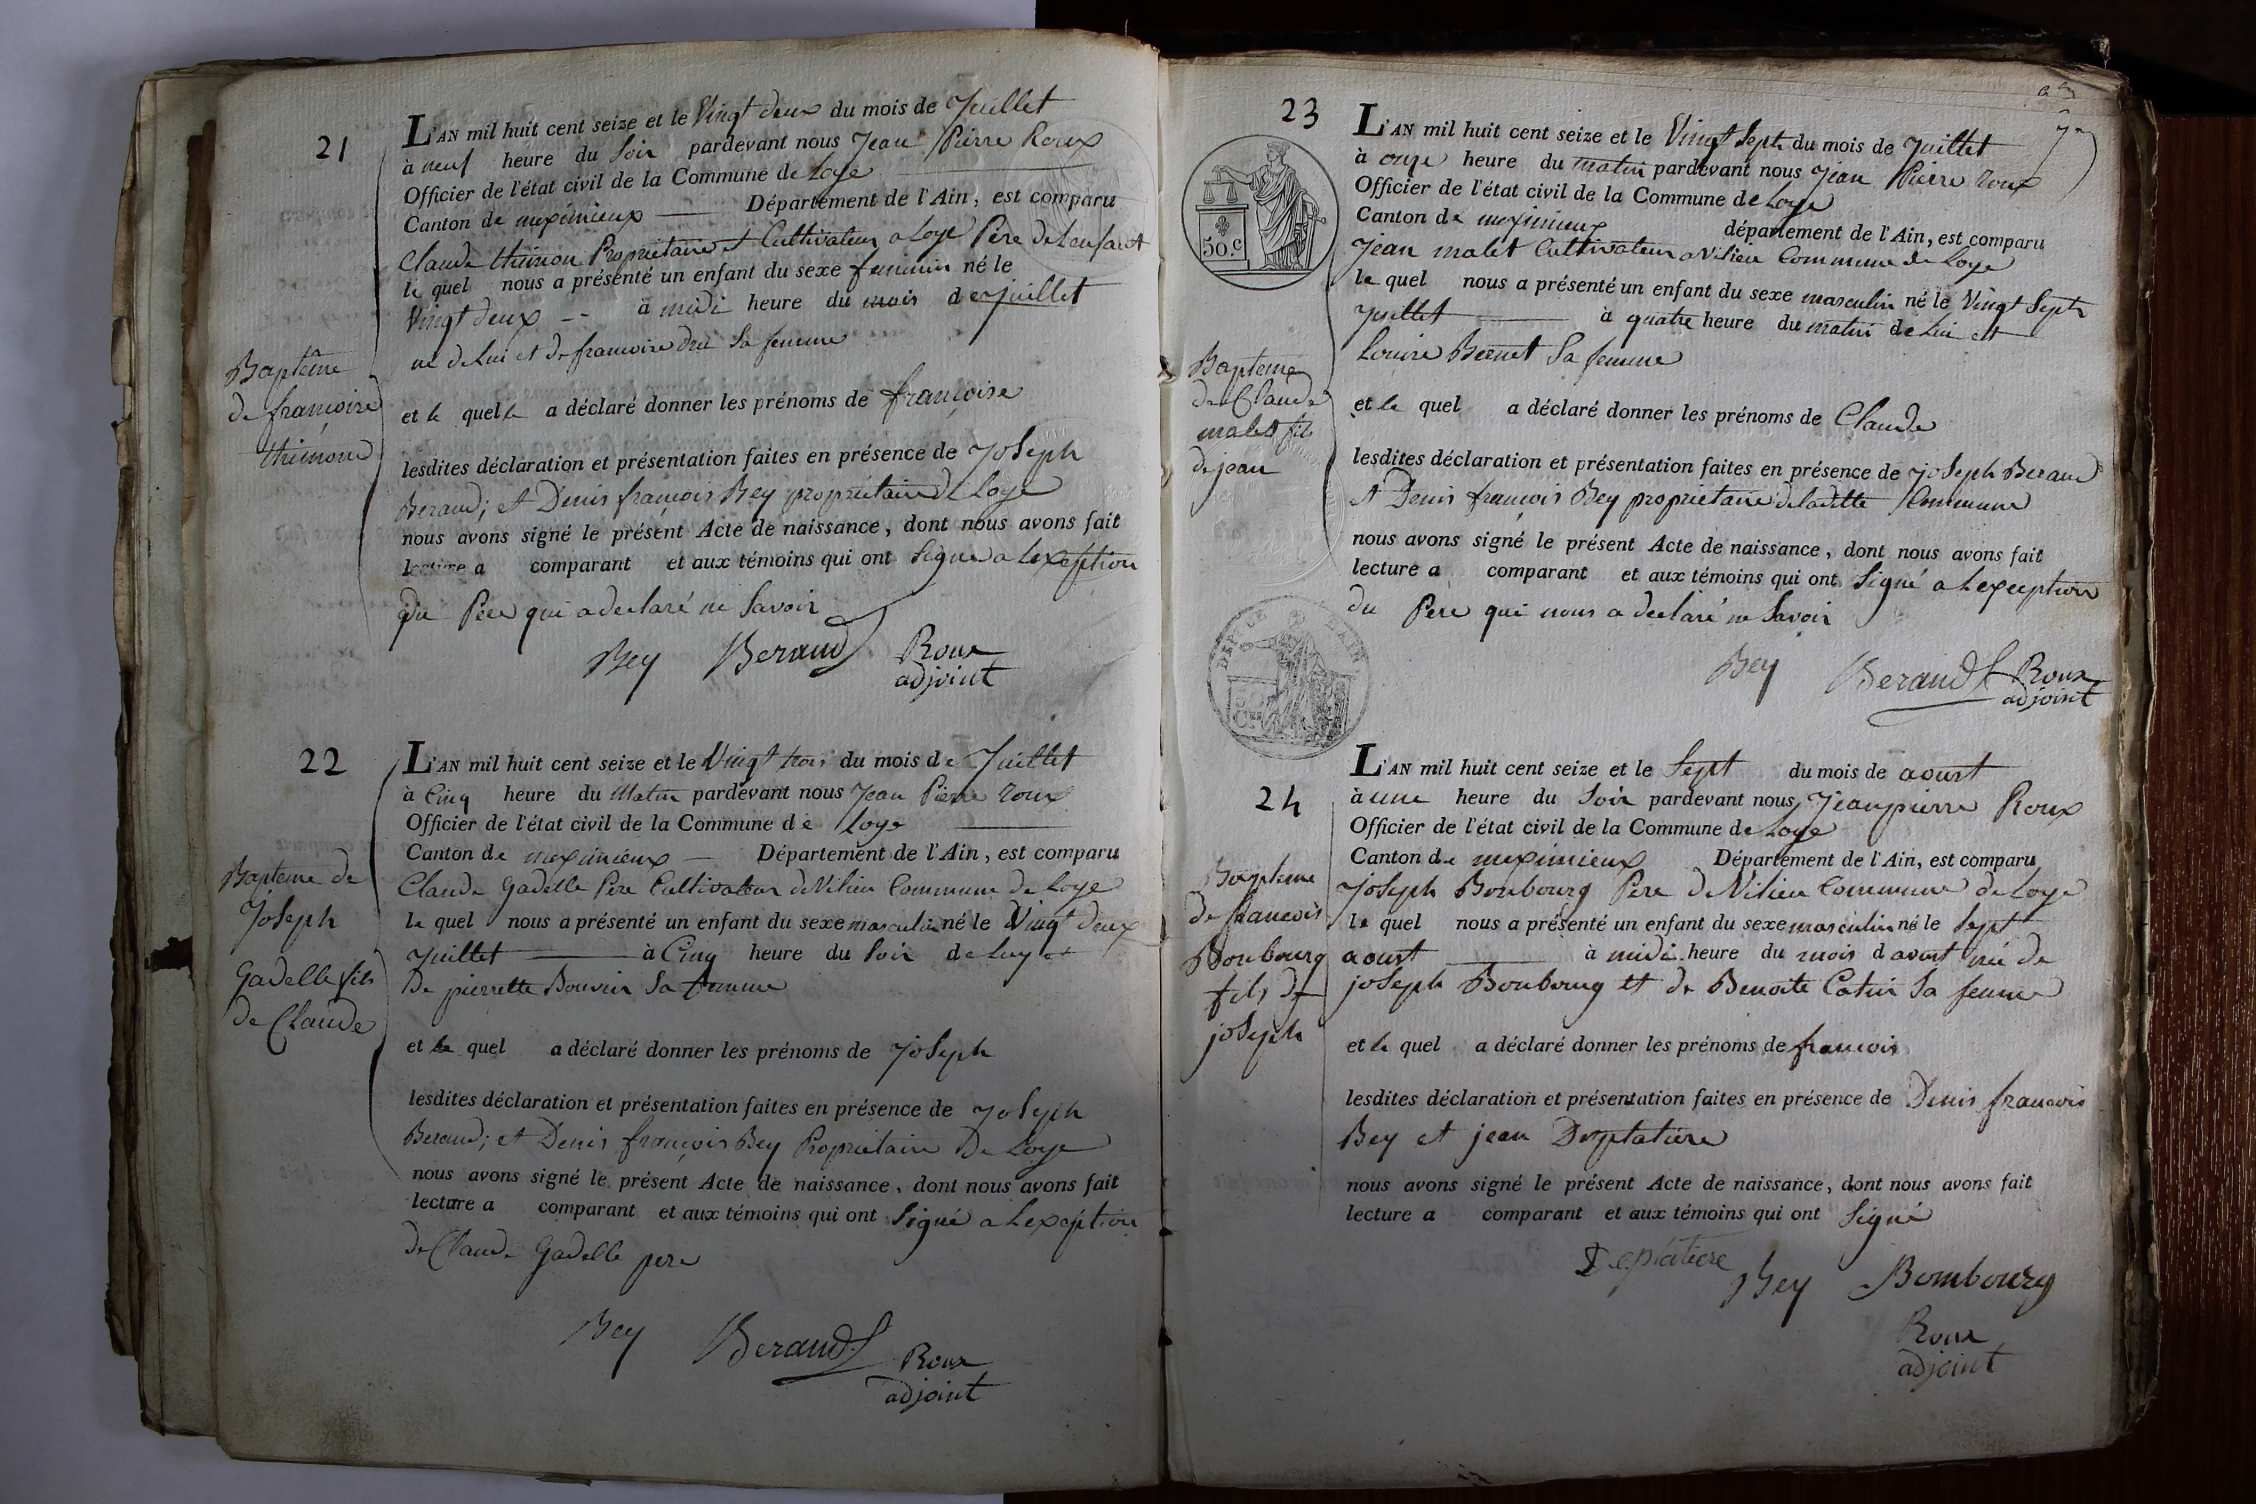 21
L'AN mil huit cent seize et le Vingt deux du mois de Juillet
à neuf heure du Soir pardevant nous Jean Pierre Roux
Officier de l'état civil de la Commune de Loye
Canton de meximieux Département de l'Ain, est comparu
Claude thimon Proprietaire et Cultivateur a Loye Père de Lenfant
le quel nous a présenté un enfant du sexe feminin né le
Vingt deux -- à midi heure du mois de juillet
né de Lui et de francoise dru Sa femme
Baptême
de francoise
thimon
et le quel a déclaré donner les prénoms de françoise
lesdites déclaration et présentation faites en présence de Joseph
Beraud; et Denis françois Bey proprietaire de Loye
nous avons signé le présent Acte de naissance, dont nous avons fait
lecture a comparant et aux témoins qui ont Signé a Lexception
du Père qui a declaré ne Savoir
Bey Beraud Roux
adjoint
22
L'AN mil huit cent seize et le Vingt trois du mois de Juillet
à Cinq heure du Matin pardevant nous Jean Pierre roux
Officier de l'état civil de la Commune de Loye
Canton de meximieux Département de l'Ain, est comparu
Claude Gadelle Père Cultivateur de Vilieu Commune de Loye
le quel nous a présenté un enfant du sexe masculin né le Vingt deux
Juillet à Cinq heure du Soir de Luy et
De pierrette Bouvier Sa femme
Bapteme de
Joseph
Gadelle fils
de Claude
et le quel a déclaré donner les prénoms de Joseph
lesdites déclaration et présentation faites en présence de Joseph
Beraud; et Denis françois Bey Proprietaire De Loye
nous avons signé le présent Acte de naissance, dont nous avons fait
lecture a comparant et aux témoins qui ont Signé a Lexception
de Claude Gadelle pere
Bey Beraud Roux
adjoint
23
50.c
L'AN mil huit cent seize et le Vingt Sept du mois de Juillet
à onze heure du matin pardevant nous Jean Pierre roux
Officier de l'état civil de la Commune de Loye
Canton de meximieux département de l'Ain, est comparu
Jean malet Cultivateur a Vilieu Commune de Loye
le quel nous a présenté un enfant du sexe masculin né le Vingt Sept
Juillet à quatre heure du matin de Lui et
Louise Bernet Sa femme
Bapteme
de Claude
malet fils
de jean
et le quel a déclaré donner les prénoms de Claude
lesdites déclaration et présentation faites en présence de Joseph Beraud
et Denis françois Bey proprietaire de laditte Commune
nous avons signé le présent Acte de naissance, dont nous avons fait
lecture a comparant et aux témoins qui ont Signé a Lexception
du Pere qui nous a declaré ne Savoir
Bey Beraud Roux
adjoint
24
L'AN mil huit cent seize et le Sept du mois de aoust
à une heure du Soir pardevant nous Jean pierre Roux
Officier de l'état civil de la Commune de Loye
Canton de meximieux Département de l'Ain, est comparu
Joseph Bonbourg Père de Vilieu Commune de Loye
le quel nous a présenté un enfant du sexe masculin né le Sept
aoust à midi heure du mois d aoust né de
joseph Bonbourg et de Benoite Catin Sa femme
Bapteme
de francois
Bonbourg
fils de
joseph
et le quel a déclaré donner les prénoms de francois
lesdites déclaration et présentation faites en présence de Denis francois
Bey et jean Deplatiere
nous avons signé le présent Acte de naissance, dont nous avons fait
lecture a comparant et aux témoins qui ont Signé
Deplatiere Bey Bombourg
Roux
adjoint